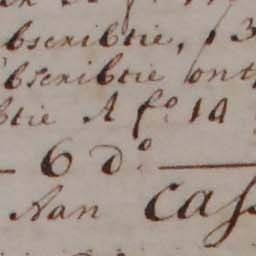 bscribtie, 13
bscribtie ont
btie A fo. 19
6 do.
Aan Cas